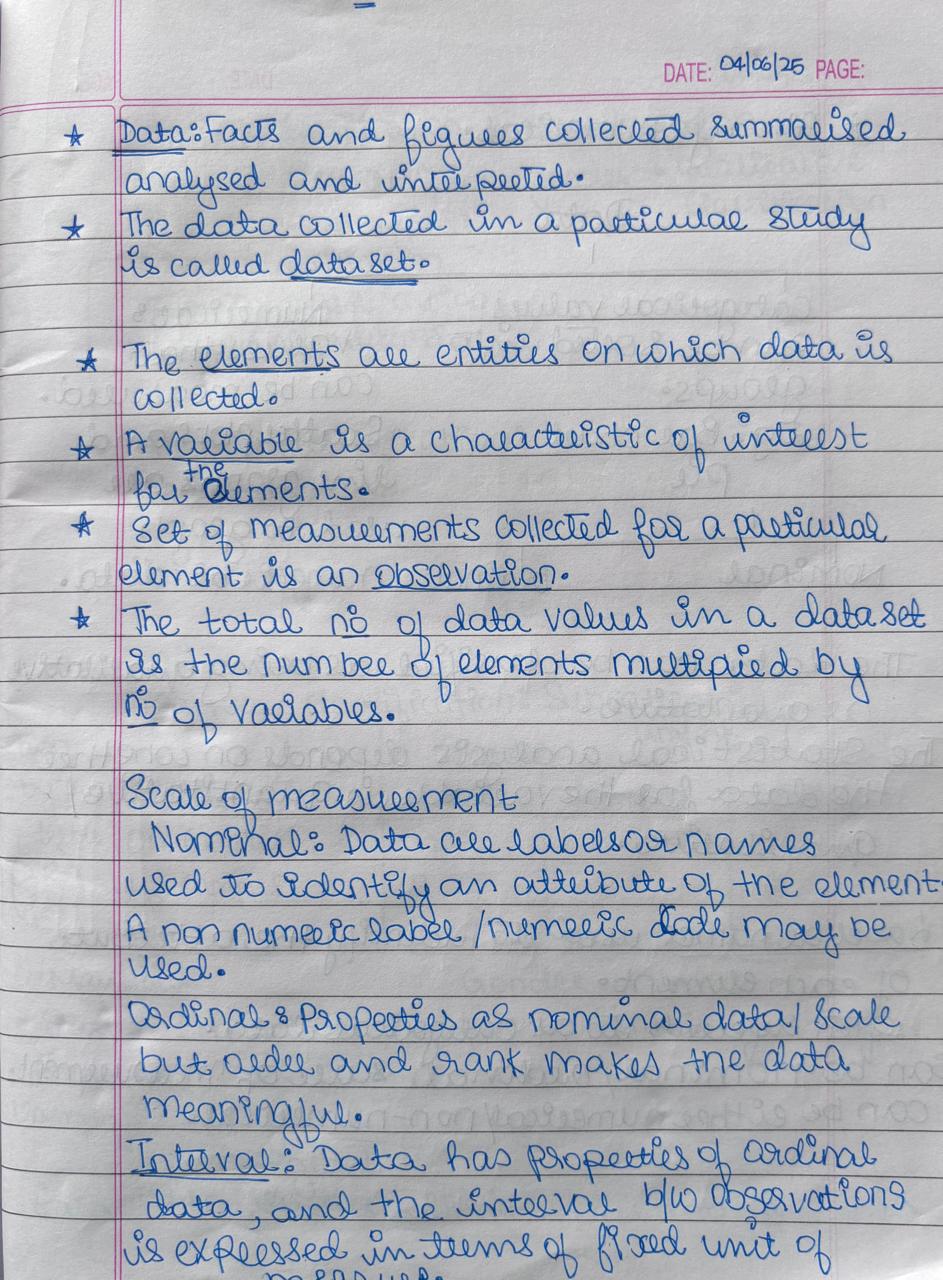 DATE: 04/06/25 PAGE:
★ Data: Facts and figures collected summarised
analysed and interpreted.
★ The data collected in a particular study
is called data set.
★ The elements are entities on which data is
collected.
★ A variable is a characteristic of interest
for the elements.
★ Set of measurements collected for a particular
element is an observation.
★ The total no of data values in a data set
is the number of elements multiplied by
no of variables.
Scale of measurement
Nominal: Data are labels or names
used to identify an attribute of the element.
A non numeric label / numeric code may be
used.
Ordinal: Properties as nominal data / scale
but order and rank makes the data
meaningful.
Interval: Data has properties of ordinal
data, and the interval b/w observations
is expressed in terms of fixed unit of
measure.